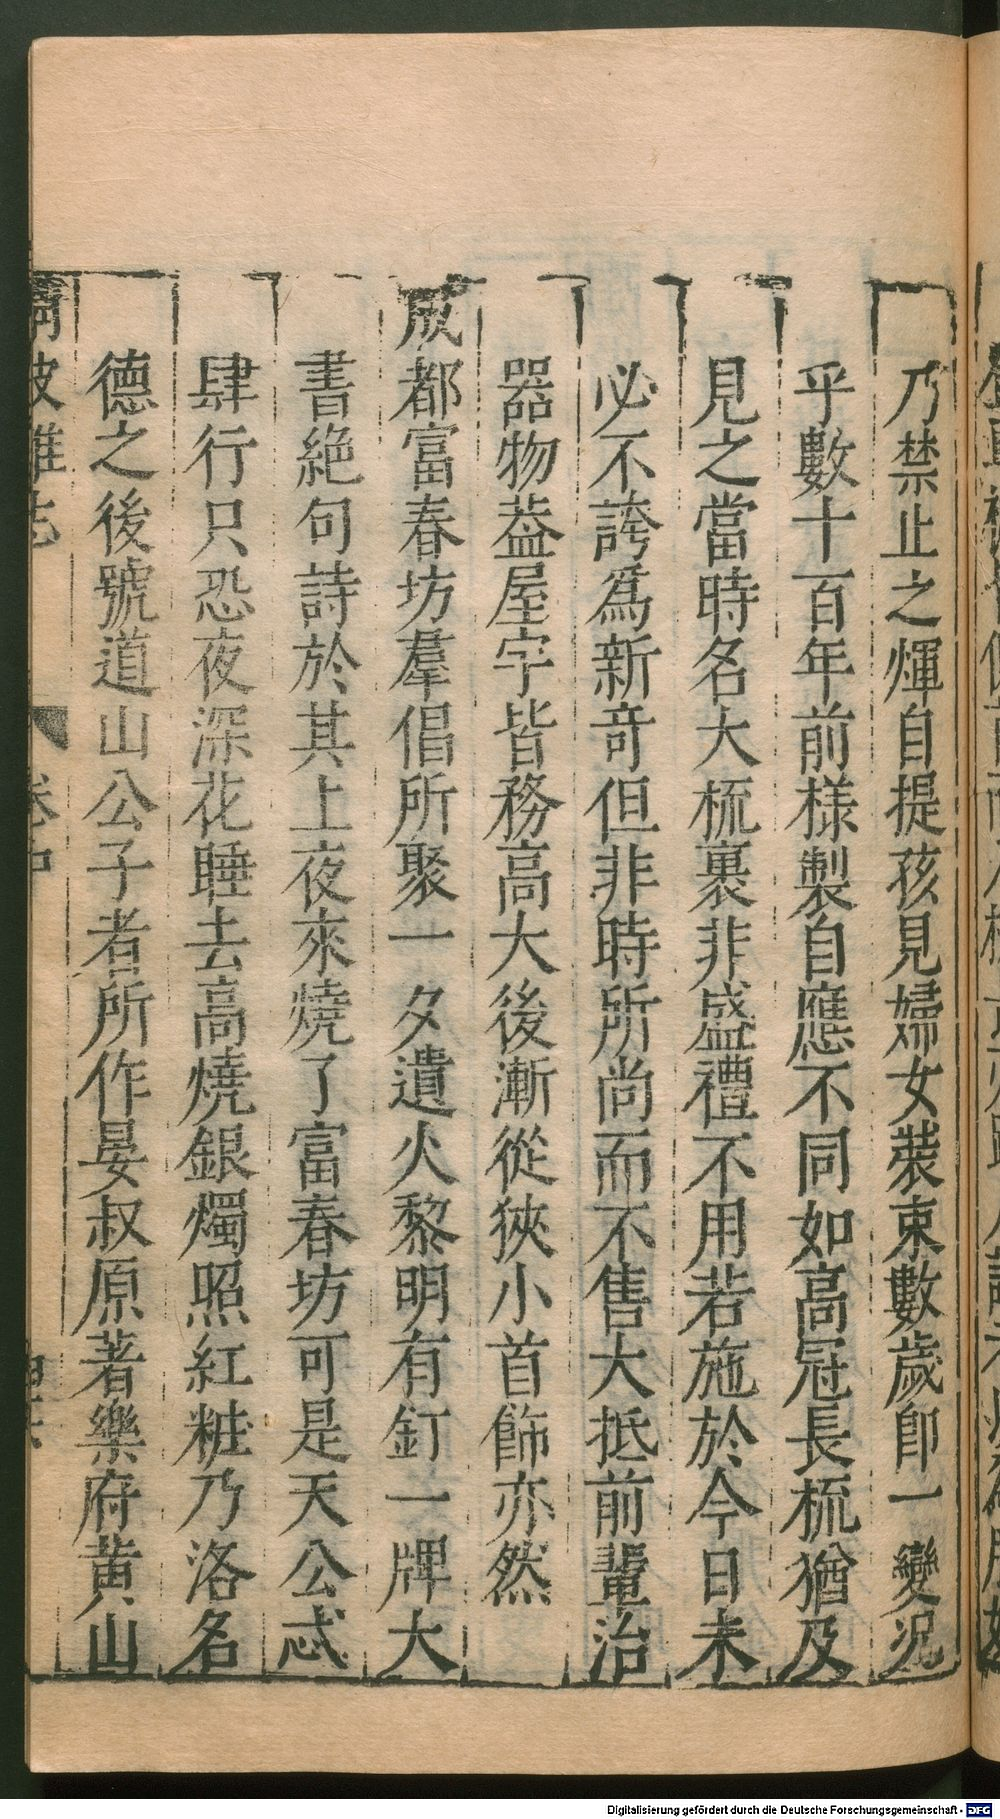 乃禁止之煇自提孩見婦女裝束數歲卽一變況
乎數十百年前様製自應不同如高冠長梳猶及
見之當時名大梳裹非盛禮不用若施於今日未
必不誇爲新竒但非時所尚而不售大抵前輩治
器物葢屋宇皆務高大後漸從狹小首飾亦然
成都富春坊羣倡所聚一夕遺火黎明有釘一牌大
書絶句詩於其上夜來燒了富春坊可是天公忒
肆行只恐夜深花睡去高燒銀燭照紅粧乃洛名
德之後號道山公子者所作晏叔原著樂府黄山
波雜志
卷中
Digitalisierung gefördert durch die Deutsche Forschungsgemeinschaft - DFG